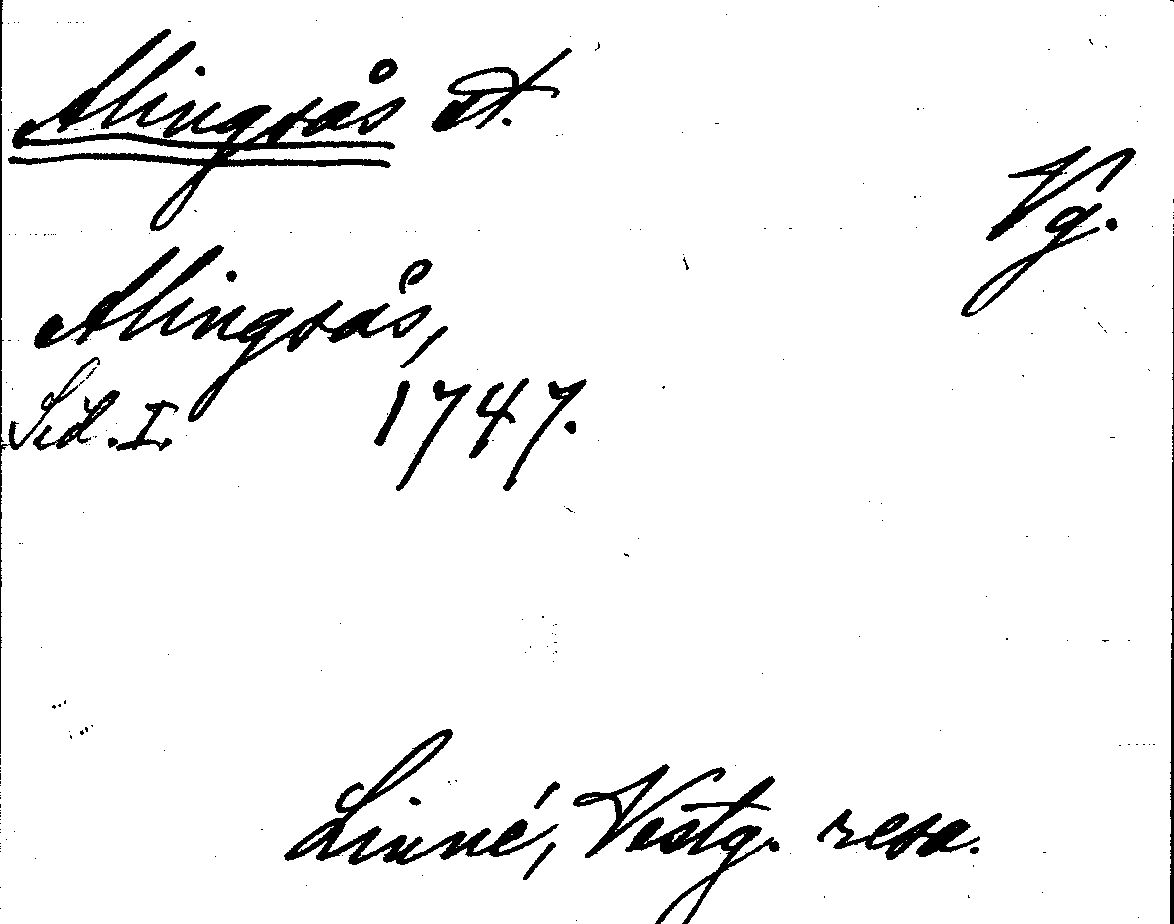 Alingsås st.
Vg.
Alingsås,
Sid. I. 1747.
Linné, Vestg. resa.